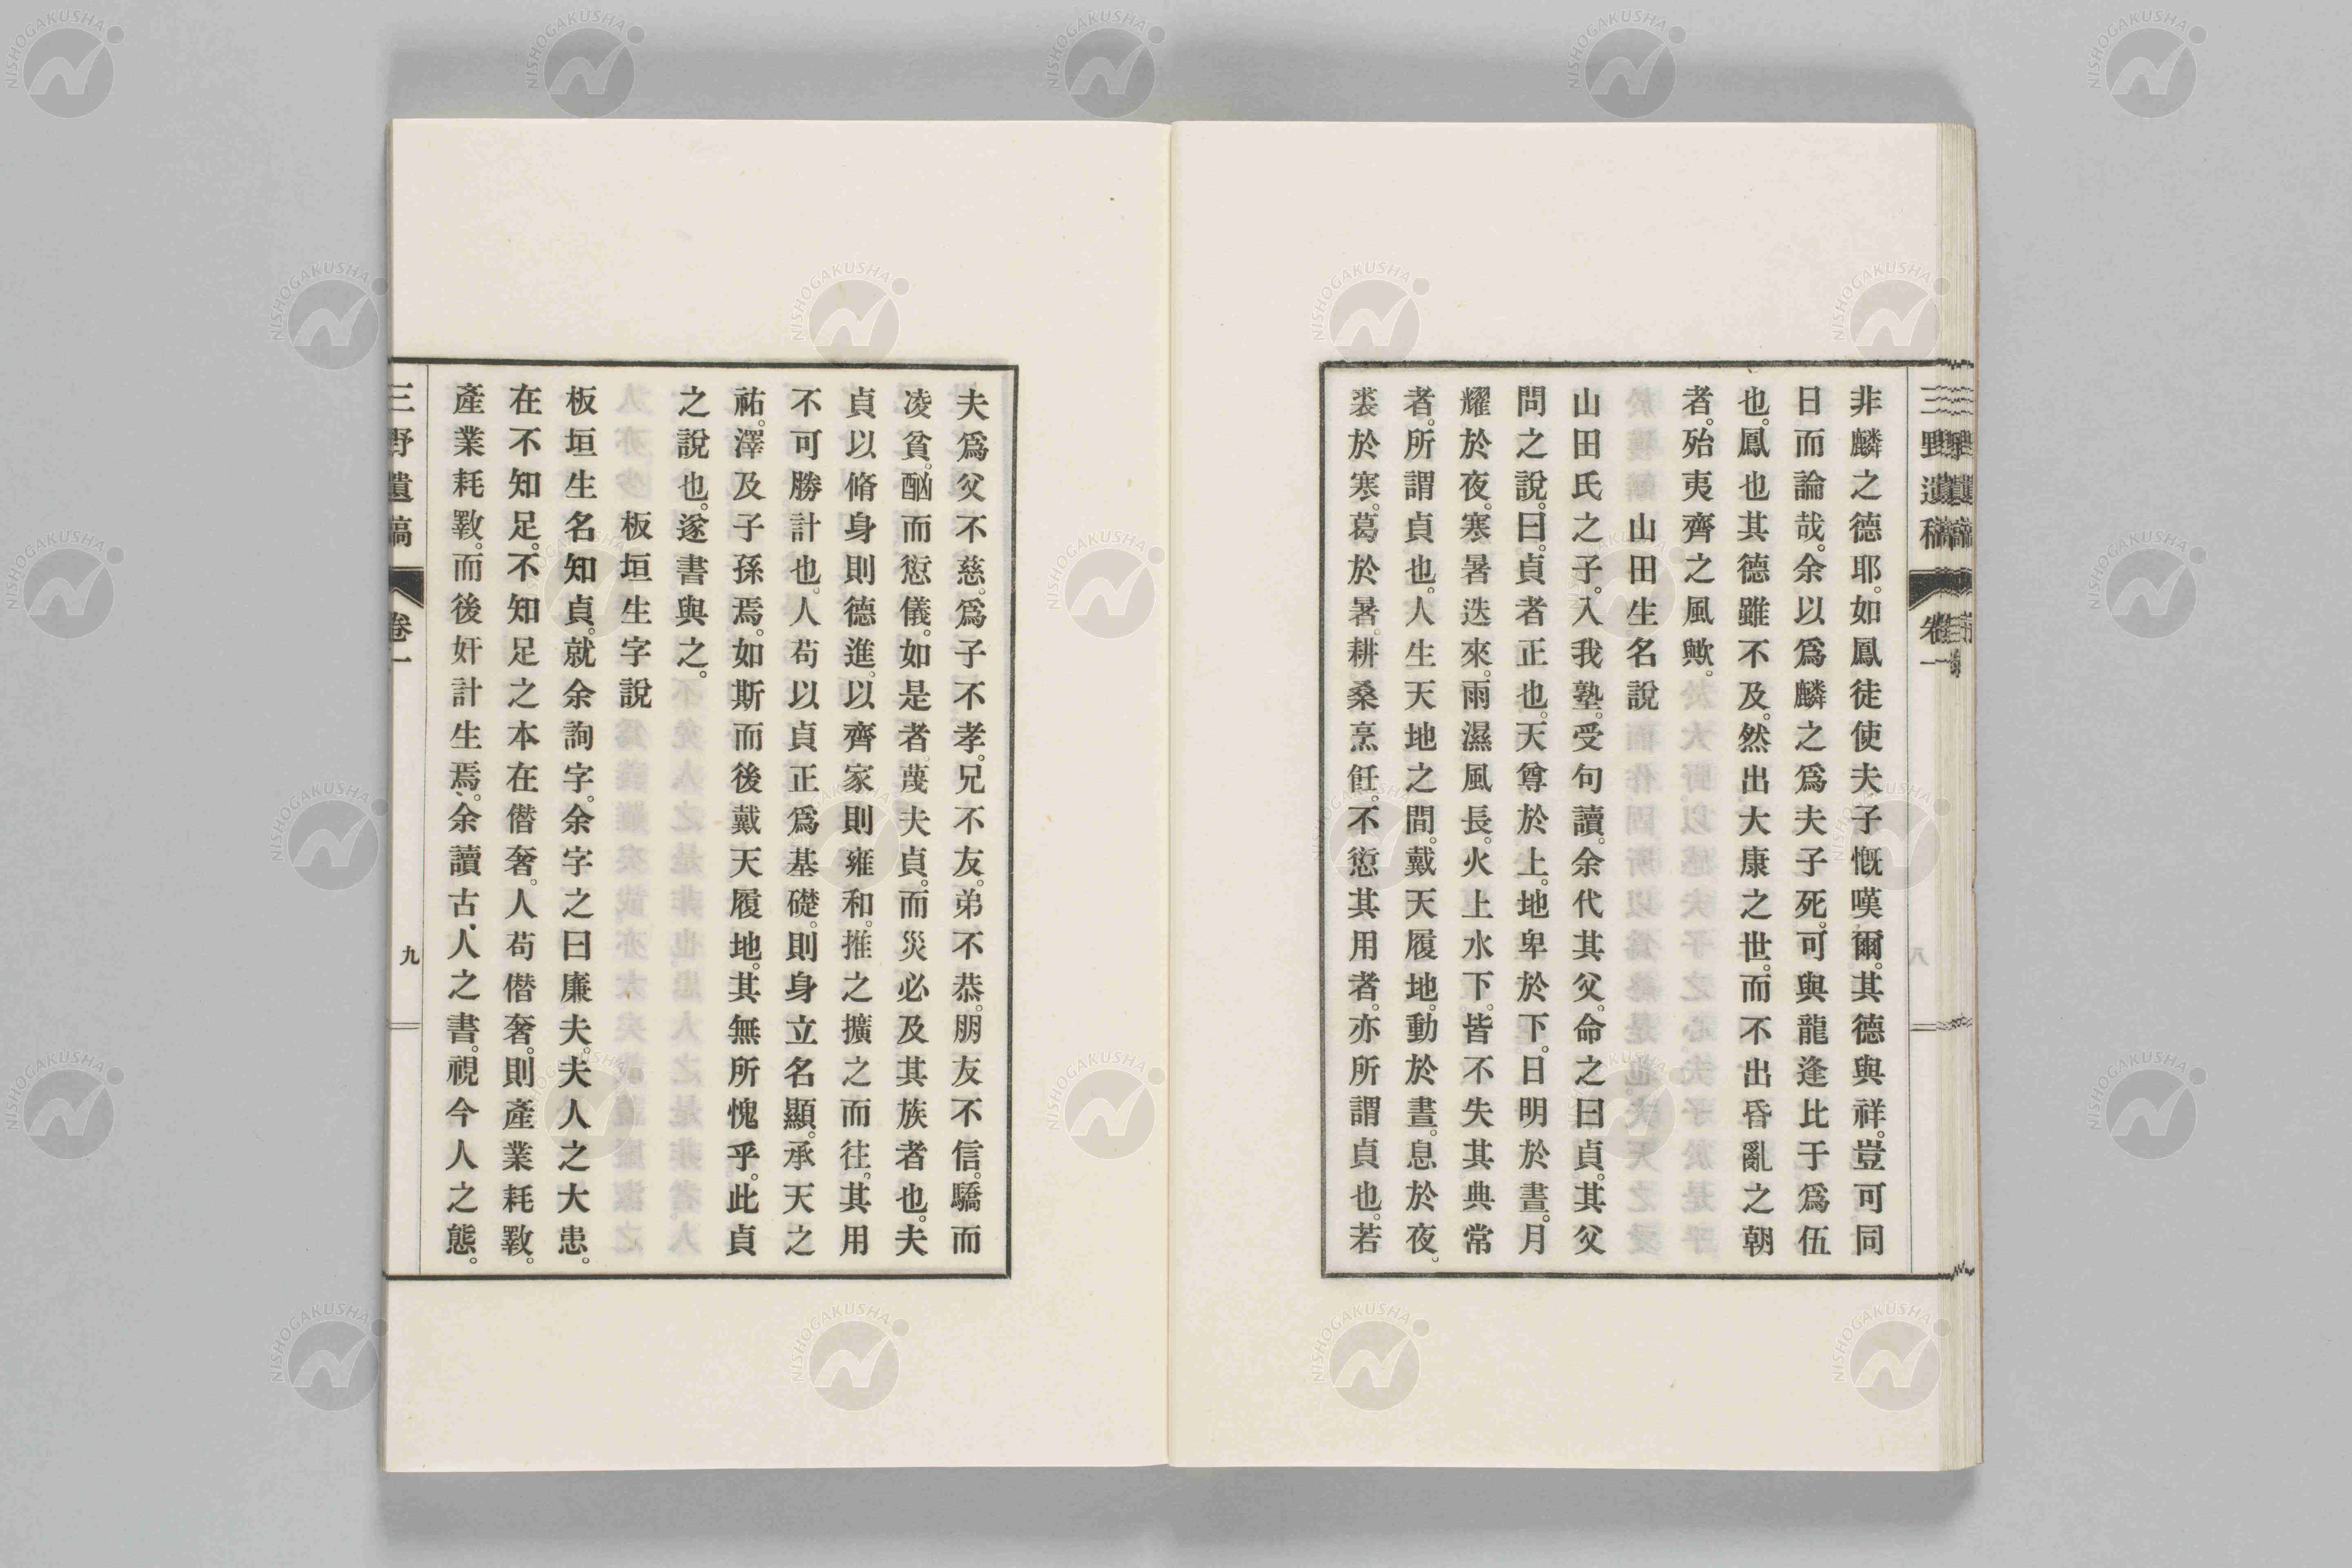 非麟之德耶。如鳳徒使夫子慨嘆爾。其德與祥。豈可同
日而論哉。余以爲麟之爲夫子死。可與龍逢比于爲伍
也。鳳也其德雖不及。然出大康之世。而不出昏亂之朝
者。殆夷齊之風歟。
山田生名說
山田氏之子。入我塾。受句讀。余代其父。命之曰貞。其父
問之說。曰。貞者正也。天尊於上。地卑於下。日明於晝。月
耀於夜。寒暑迭來。雨濕風長。火上水下。皆不失其典常
者。所謂貞也。人生天地之間。戴天履地。動於晝。息於夜。
裘於寒。葛於暑。耕桑烹飪。不愆其用者。亦所謂貞也。若
夫爲父不慈。爲子不孝。兄不友。弟不恭。朋友不信。驕而
凌貧。酗而愆儀。如是者。蔑夫貞。而災必及其族者也。夫
貞以脩身則德進。以齊家則雍和。推之擴之而往。其用
不可勝計也。人苟以貞正爲基礎。則身立名顯。承天之
祐。澤及子孫焉。如斯而後戴天履地。其無所愧乎。此貞
之說也。遂書與之。
板垣生字說
板垣生名知貞。就余詢字。余字之曰廉夫。夫人之大患。
在不知足。不知足之本在僭奢。人苟僭奢。則產業耗斁。
產業耗斁。而後奸計生焉。余讀古人之書。視今人之態。
三野遺稿 卷一 九
三野遺稿 卷一
NISHOGAKUSHA